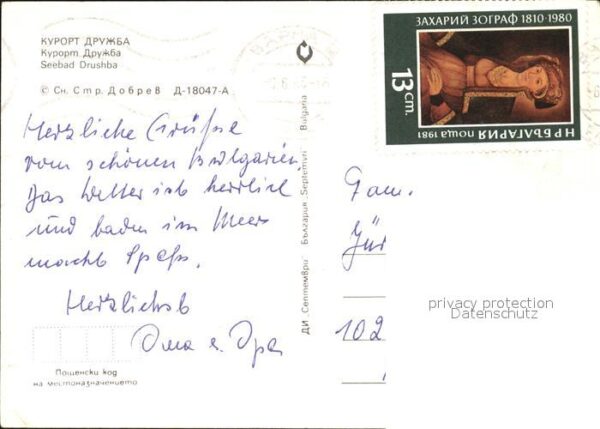 КУРОРТ ДРУЖБА
Курорт Дружба
Seebad Drushba
© Сн. Стр. Добрев Д-18047-А
Herzliche Grüße
vom schönen Bulgarien
Das Wetter ist herrlich
und baden im Meer
macht Spaß.
Herzlichst
Oma u. Opa
Пощенски код
на местоназначението
ДИ „Септември“ България. Septemvri Bulgaria
ЗАХАРИЙ ЗОГРАФ 1810-1980
13 cm.
НР БЪЛГАРИЯ поща 1981
Fam.
Jür
102
privacy protection
Datenschutz